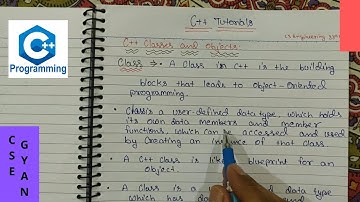 C++ Tutorials
CS Engineering
C++ Classes and Objects:
Class :→ • A Class in C++ is the building
blocks that leads to Object-Oriented
programming.
• Class is a user-defined data type, which holds
its own data members and member
functions, which can be accessed and used
by creating an instance of that class.
• A C++ Class is like a blueprint for an
Object.
• A Class is a user defined data type
which has data
C++
Programming
CSE
GYAN